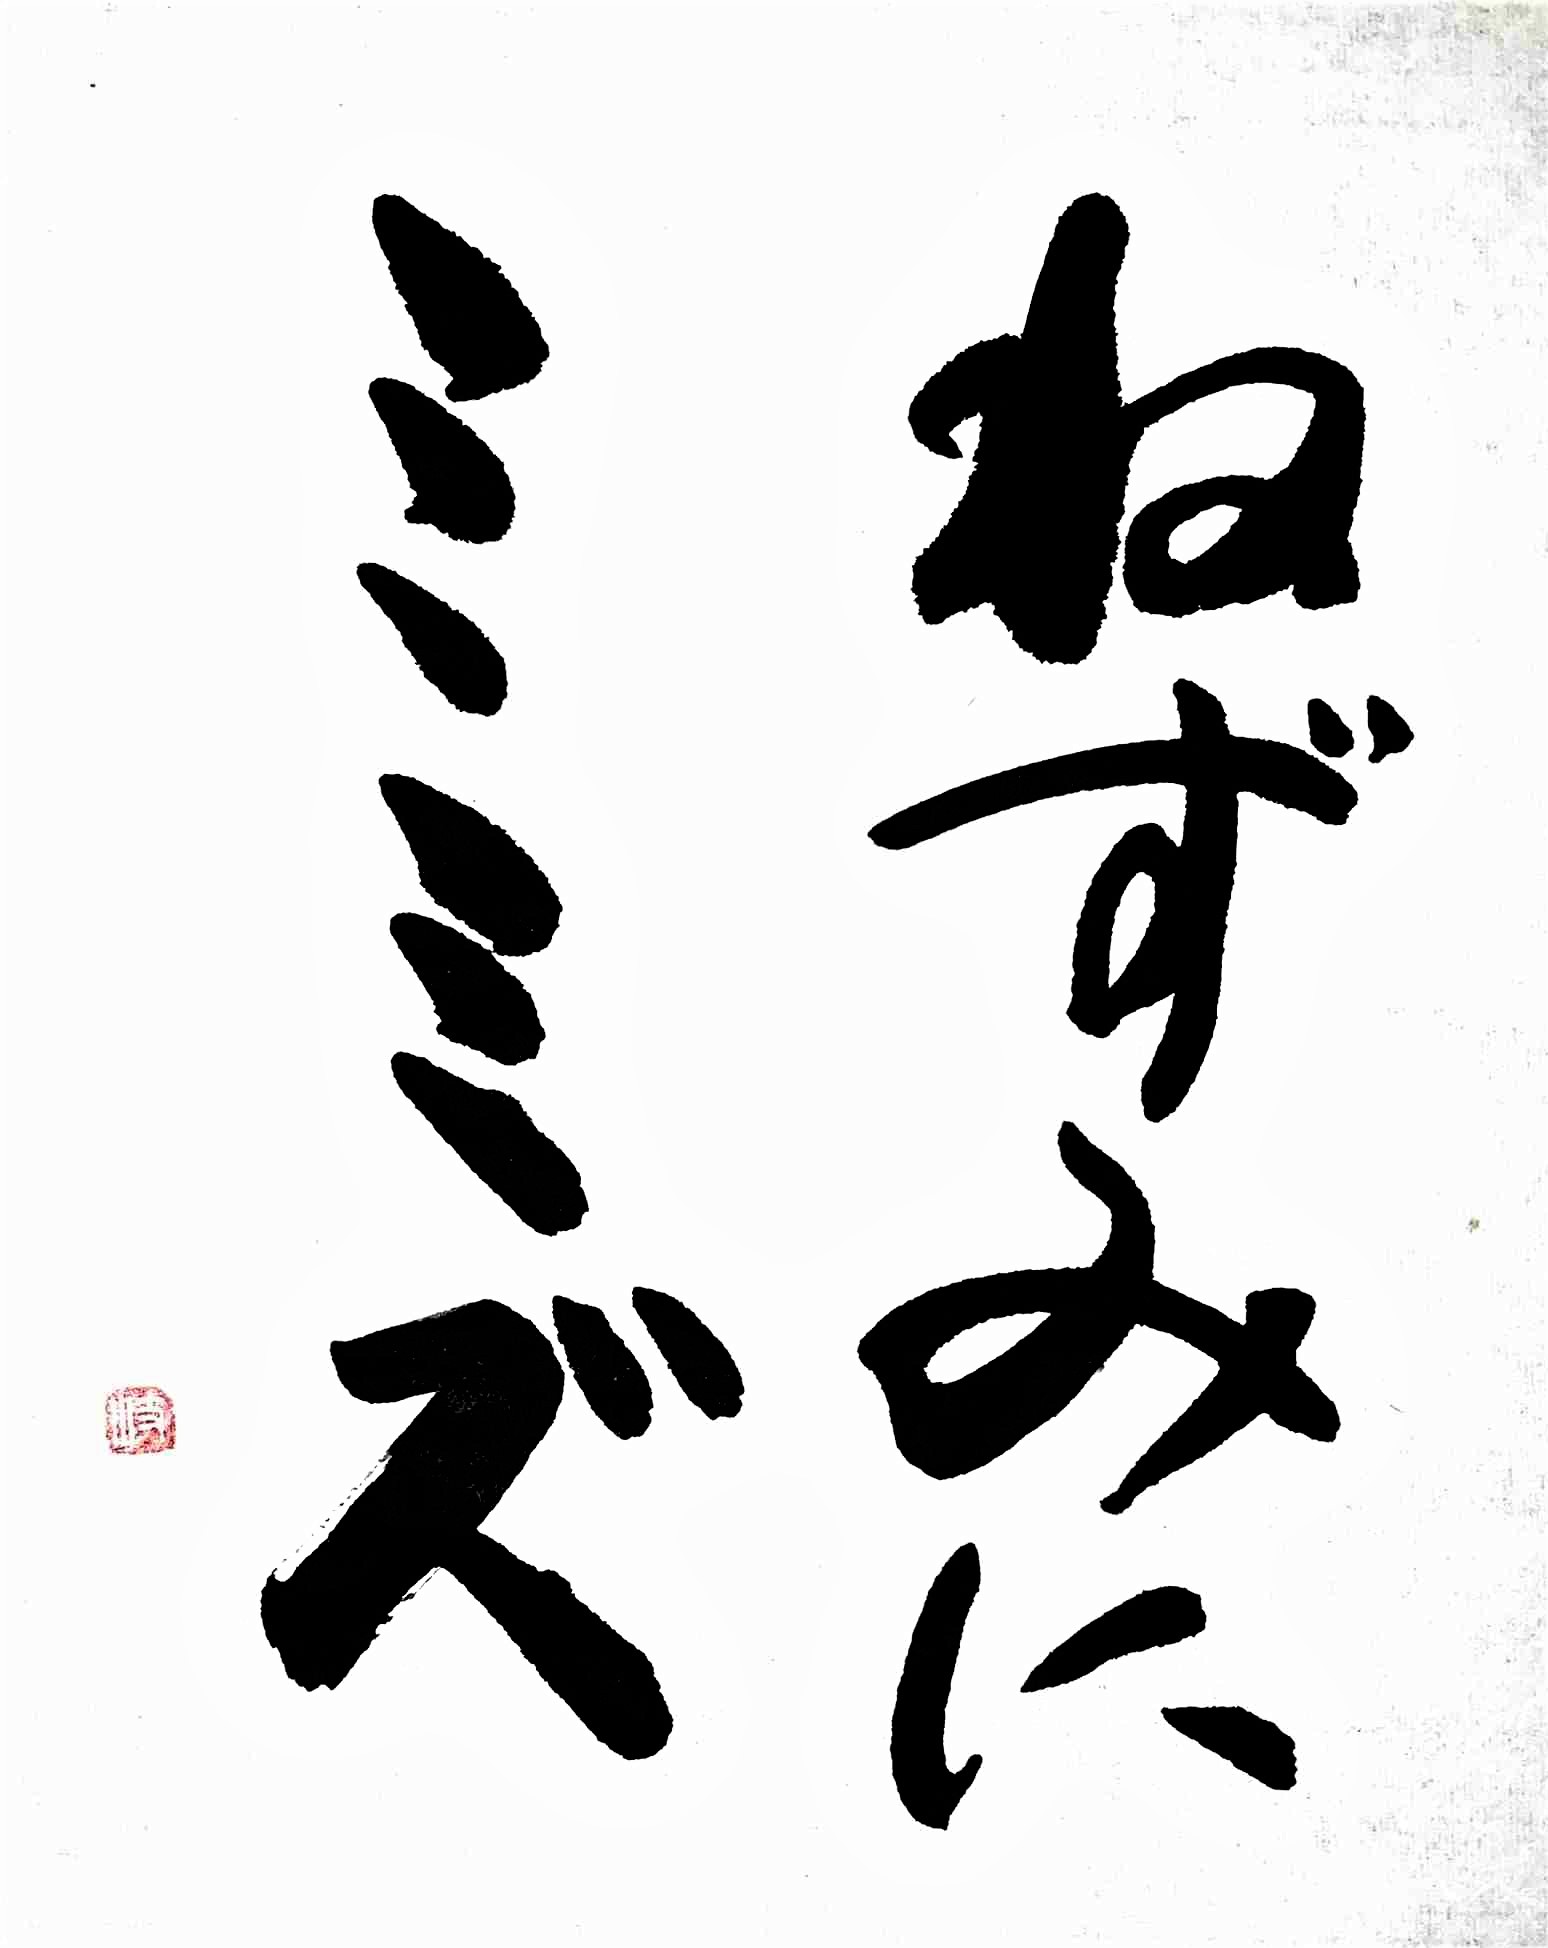 ねずみに
ミミズ